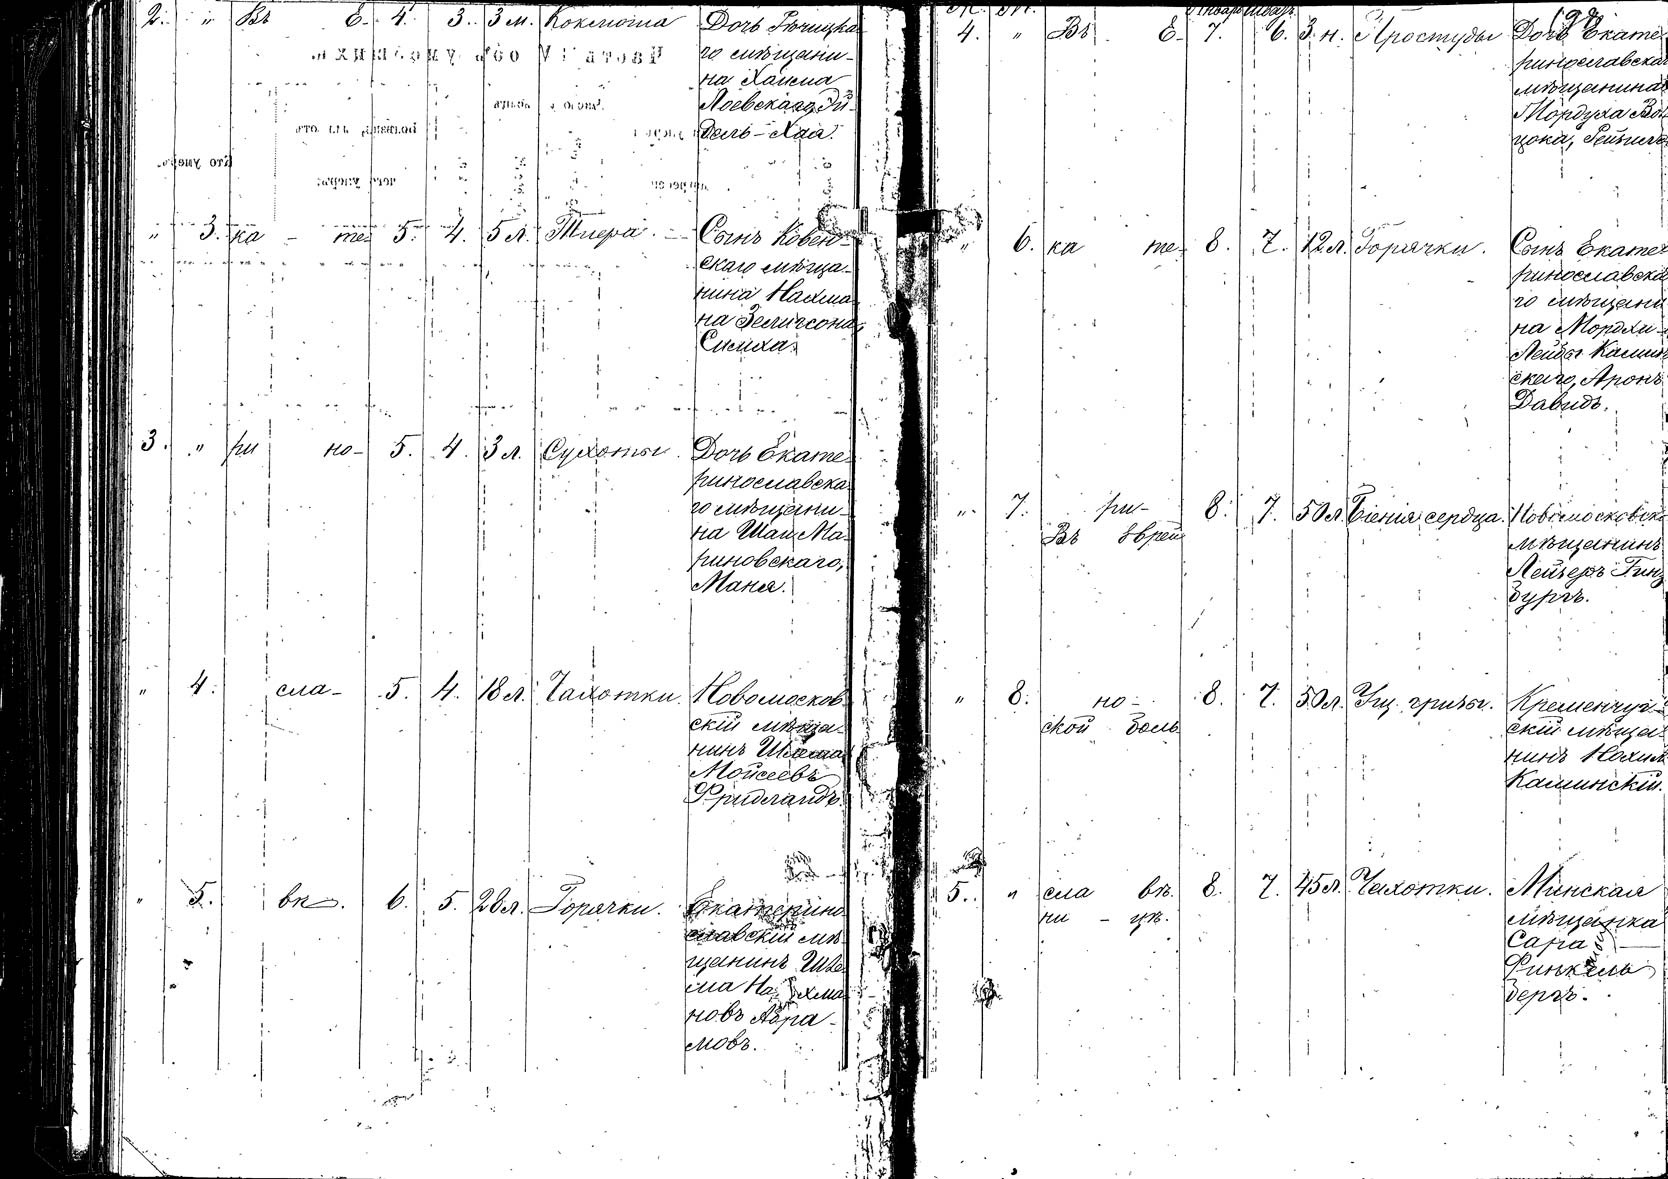 2. " Въ Е- 4. 3. 3 м. Коклюша Дочь Рѣчицка-
го мѣщани-
на Хаима
Лоевскаго,
дель-Хая.
" 3. ка - те- 5. 4. 5 л. Тифа. Сынъ Ковен-
скаго мѣща-
нина Нахма-
на Зелигсона,
Симха.
3. " ри но- 5. 4. 3 л. Сухоты. Дочь Екате-
ринославска-
го мѣщани-
на Шаи Ма-
риновскаго,
Маня.
" 4. сла- 5. 4. 18 л. Чахотки. Новомосков-
скій мѣща-
нинъ
Мойсеевъ
Фридландъ.
" 5. вѣ. 6. 5. 20 л. Горячки. Екатерино-
славскій мѣ-
щанинъ Шле-
ма Нахма-
новъ Абра-
мовъ.
М. Январь
198
4. " Въ Е- 7. 6. 3 н. Простуды Дочь Екате-
ринославскаго
мѣщанина
Мордуха
" 6. ка те- 8. 7. 12 л. Горячки. Сынъ Екате-
ринославска-
го мѣщани-
на Мордхи-
Лейбы Камин-
скаго, Аронъ
Давидъ.
" 7. ри- 8. 7. 50 л. Біенія сердца. Новомосковскій
Въ Еврей мѣщанинъ
Лейзеръ Гинз-
бургъ.
" 8. но- 8. 7. 50 л. Ущ. грыжи. Кременчуг-
ской боль скій мѣща-
нинъ Нохимъ
Каминскій.
5. " сла вѣ. 8. 7. 45 л. Чахотки. Минская
ни - цѣ. мѣщанка
Сара
Финкель
бергъ.